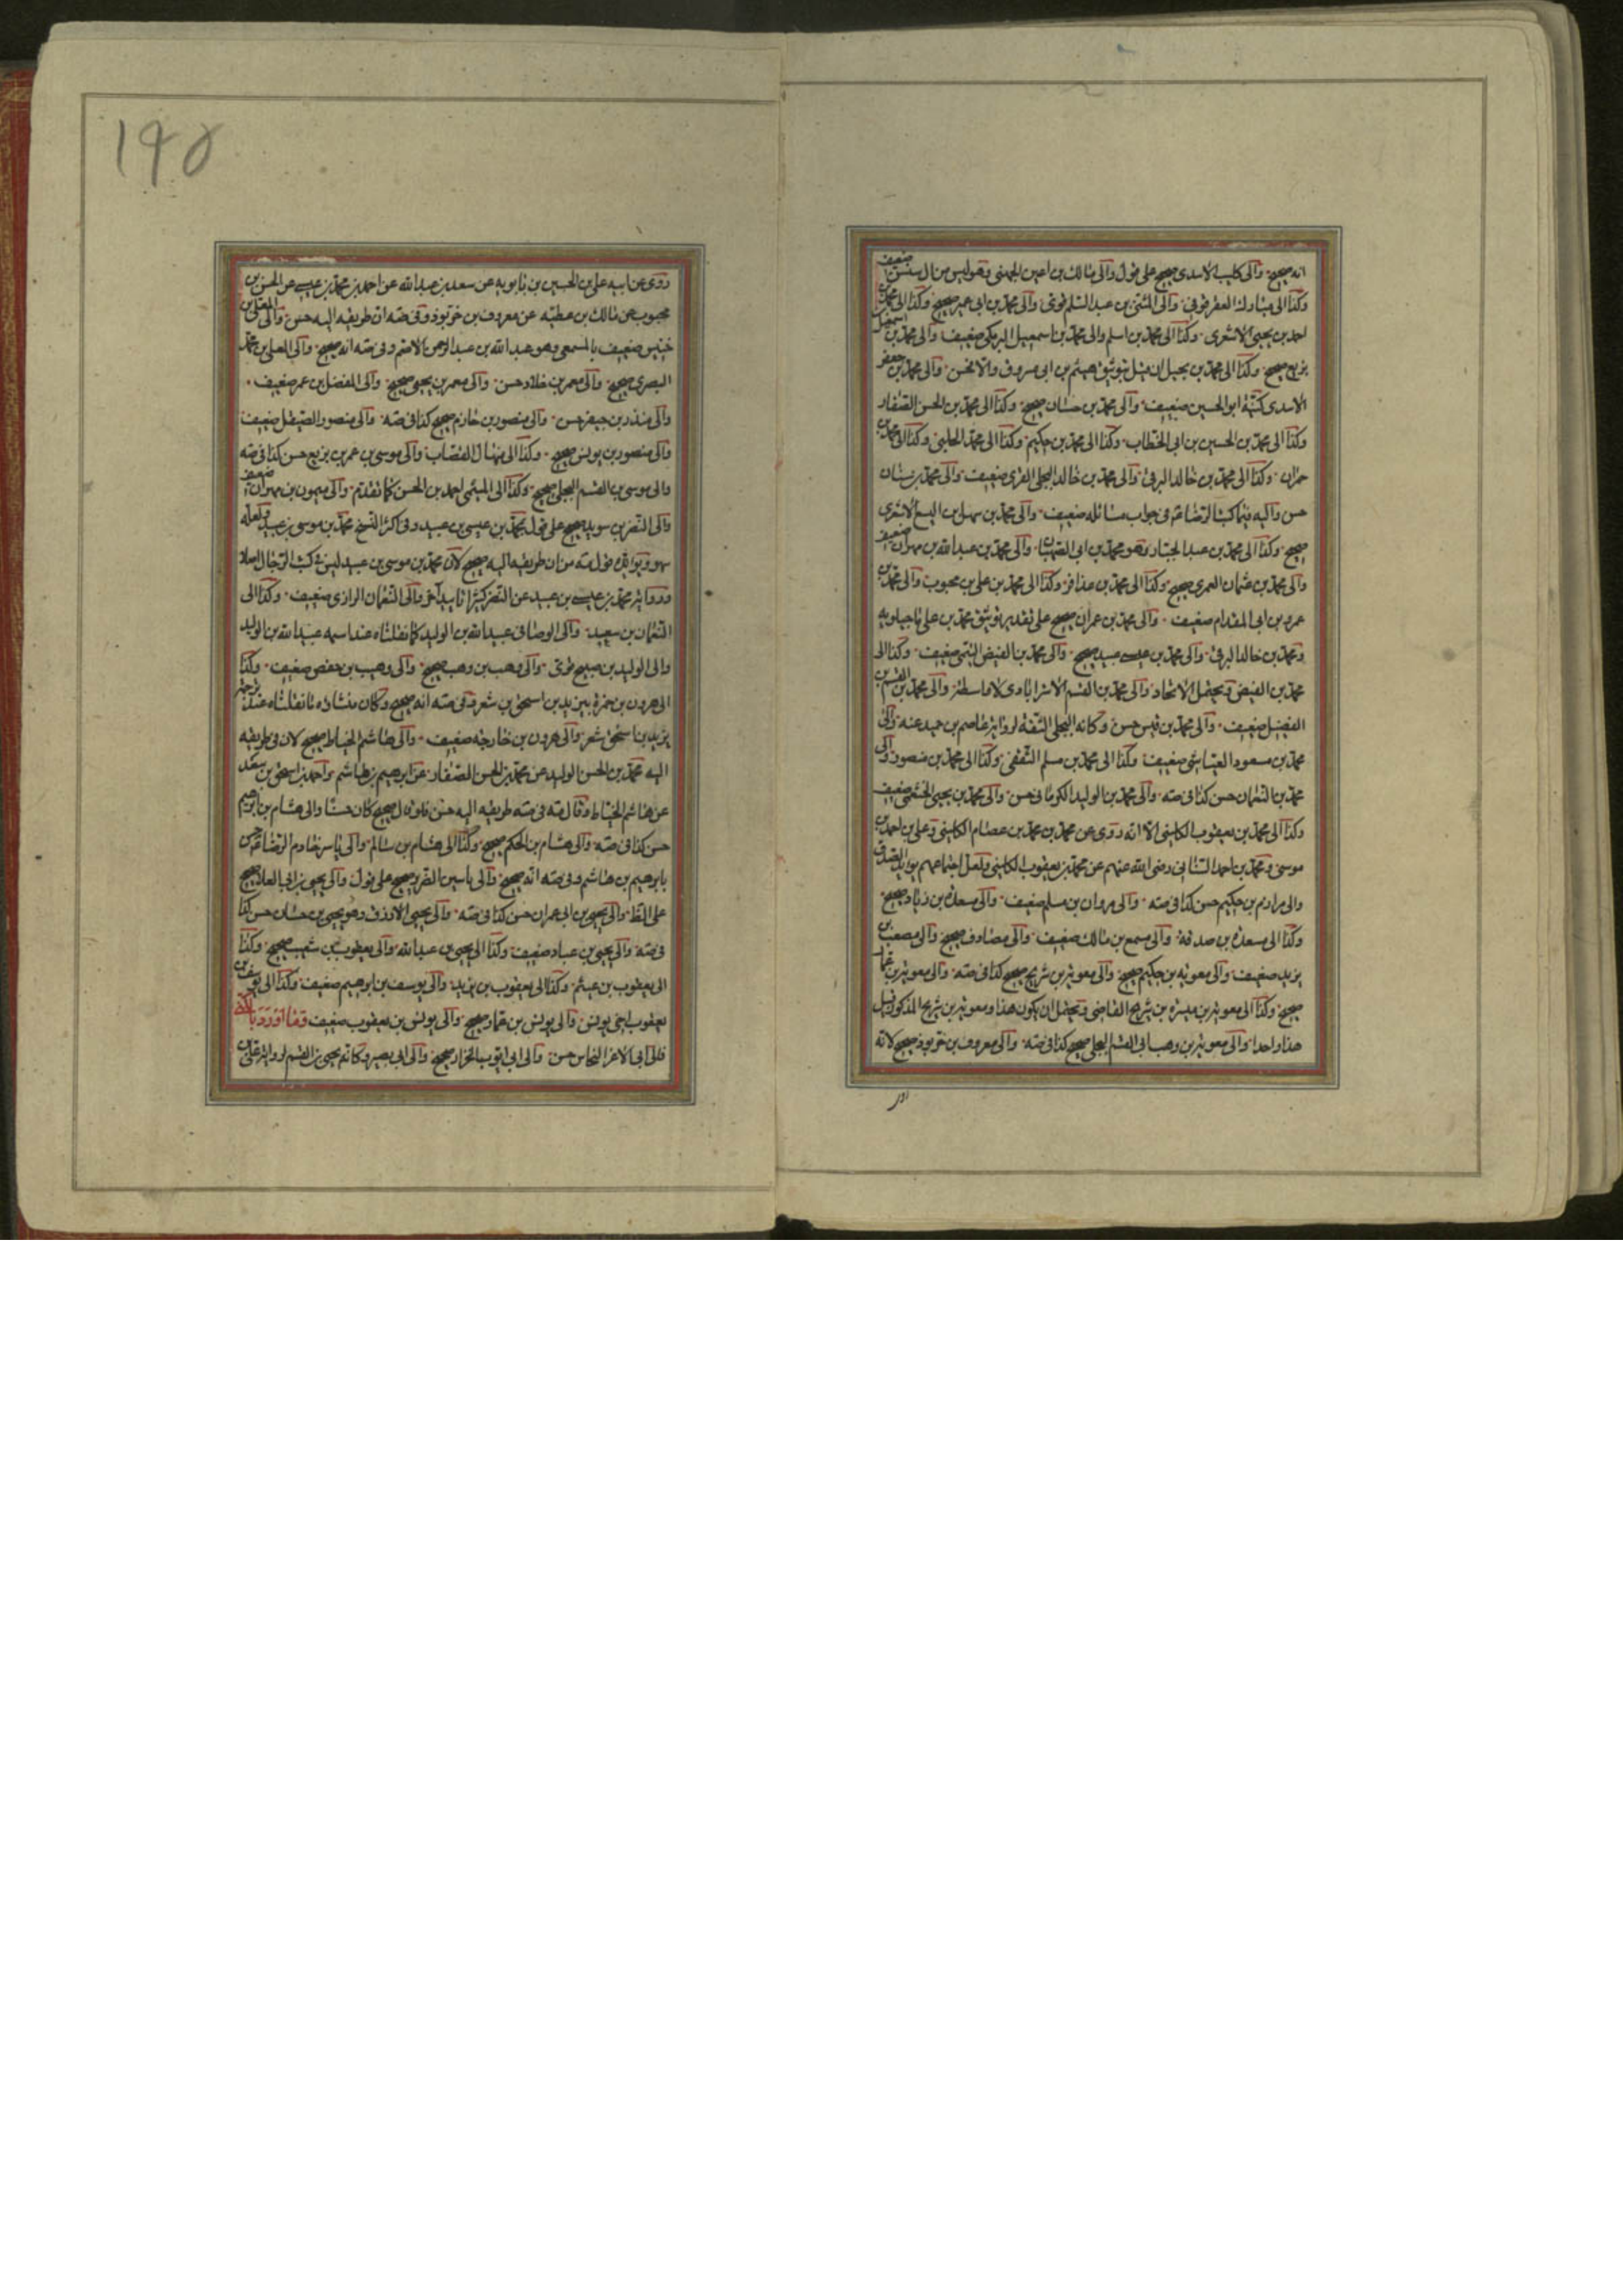 انه صحيح وآلى كليب الاسدى صحيح على قول وآلى مالك بن اعين الجهنى وهو ليس من آل سنسن ضعيف
وكذا الى مبارك العقرقوفى وآلى المثنى بن عبد السلم قوى وآلى محمد بن ابى عمير صحيح وكذا الى محمد بن
احمد بن يحيى الاشعرى وكذا الى محمد بن اسلم والى محمد بن اسمعيل البرمكى ضعيف وآلى محمد بن اسمعيل
بزيع صحيح وكذا الى محمد بن بجيل ان قيل بتوثيق هيثم بن ابى مسروق والا فحسن وآلى محمد بن جعفر
الاسدى كنيته ابو الحسين ضعيف وآلى محمد بن حسان صحيح وكذا الى محمد بن الحسن الصفار
وكذا الى محمد بن الحسين بن ابى الخطاب وكذا الى محمد بن حكيم وكذا الى محمد الحلبى وكذا الى محمد بن
حمران وكذا الى محمد بن خالد البرقى وآلى محمد بن خالد البجلى القسرى ضعيف وآلى محمد بن سنان
حسن وآليه فيما كتب الرضا ع فى جواب مسائله ضعيف وآلى محمد بن سهل بن اليسع الاشعرى
صحيح وكذا الى محمد بن عبد الجبار وهو محمد بن ابى الصهبان وآلى محمد بن عبد الله بن مهران ضعيف
وآلى محمد بن عثمان العمرى صحيح وكذا الى محمد بن عذافر وكذا الى محمد بن على بن محبوب وآلى محمد بن
عمرو بن ابى المقدام ضعيف وآلى محمد بن عمران صحيح على تقدير توثيق محمد بن على ماجيلويه
ومحمد بن خالد البرقى وآلى محمد بن عيسى عبيد صحيح وآلى محمد بن الفيض التيمى ضعيف وكذا الى
محمد بن الفيض ويحتمل الاتحاد وآلى محمد بن القسم الاسترابادى لا واسطة وآلى محمد بن القسم بن
الفضيل ضعيف وآلى محمد بن قيس حسن وكانه البجلى الثقة لرواية عاصم بن حميد عنه وآلى
محمد بن مسعود العياشى ضعيف وكذا الى محمد بن مسلم الثقفى وكذا الى محمد بن منصور وآلى
محمد بن النعمان حسن كذا فى صه وآلى محمد بن الوليد الكرمانى حسن وآلى محمد بن يحيى الخثعمى ضعيف
وكذا الى محمد بن يعقوب الكلينى الا انه روى عن محمد بن محمد بن عصام الكلينى وعلى بن احمد بن
موسى ومحمد بن احمد السنانى رضى الله عنهم عن محمد بن يعقوب الكلينى ولعل اجتماعهم يوايد الصدق
والى مرازم بن حكيم حسن كذا فى صه وآلى مروان بن مسلم ضعيف وآلى مسعدة بن زياد صحيح
وكذا الى مسعدة بن صدقة وآلى مسمع بن مالك ضعيف وآلى مصادف صحيح وآلى مصعب بن
يزيد ضعيف وآلى معوية بن حكيم صحيح وآلى معوية بن شريح صحيح كذا فى صه وآلى معوية بن عمار
صحيح وكذا الى معوية بن ميسرة بن شريح القاضى ويحتمل ان يكون هذا ومعوية بن شريح المذكور قبل
هذا واحدا وآلى معوية بن وهب ابى القسم البجلى صحيح كذا فى صه وآلى معروف بن خربوذ صحيح لانه
١٩٥
روى عن ابيه على بن الحسين بن بابويه عن سعد بن عبد الله عن احمد بن محمد بن عيسى عن الحسن بن
محبوب عن مالك بن عطية عن معروف بن خربوذ وفى صه ان طريقه اليه حسن وآلى المعلى بن
خنيس ضعيف بالمسمعى وهو عبد الله بن عبد الرحمن الاصم وفى صه انه صحيح وآلى المعلى بن محمد
البصرى صحيح وآلى معمر بن خلاد حسن وآلى معمر بن يحيى صحيح وآلى المفضل بن عمر ضعيف
وآلى منذر بن جيفر حسن وآلى منصور بن حازم صحيح كذا فى صه وآلى منصور الصيقل ضعيف
وآلى منصور بن يونس صحيح وكذا الى منهال القصاب وآلى موسى بن عمر بن بزيع حسن كذا فى صه
والى موسى بن القسم البجلى صحيح وكذا الى الميثمى احمد بن الحسن كما تقدم وآلى ميمون بن مهران ضعيف
وآلى النضر بن سويد صحيح على قول بمحمد بن عيسى بن عبيد وفى اكثر النسخ محمد بن موسى بن عبيد ولعله
سهو ويوايد قول صه من ان طريقه اليه صحيح لان محمد بن موسى بن عبيد ليس فى كتب الرجال اصلا
ورواية محمد بن عيسى بن عبيد عن النضر كثيرا تاييد آخر وآلى النعمان الرازى ضعيف وكذا الى
النعمان بن سعيد وآلى الوصافى عبيد الله بن الوليد كما نقلناه عند اسمه عبيد الله بن الوليد
والى الوليد بن صبيح قوى وآلى وهب بن وهب صحيح وآلى وهيب بن حفص ضعيف وكذا
الى هرون بن حمزة بيزيد بن اسحق بن شعر وفى صه انه صحيح وكان منشاه ما نقلناه عند ترجمة
يزيد بن اسحق شعر وآلى هرون بن خارجة ضعيف وآلى هاشم الخياط صحيح لان فى طريقه
اليه محمد بن الحسن الوليد عن محمد بن الحسن الصفار عن ابرهيم بن هاشم واحمد بن اسحق بن سعد
عن هاشم الخياط وقال صه فى صه طريقه اليه حسن فلو قال صحيح كان حسنا والى هشام بن ابرهيم
حسن كذا فى صه وآلى هشام بن الحكم صحيح وكذا الى هشام بن سالم وآلى ياسر خادم الرضا ع حسن
بابرهيم بن هاشم وفى صه انه صحيح وآلى ياسين الضرير صحيح على قول وآلى يحيى بن ابى العلا صحيح
على الظ وآلى يحيى بن ابى عمران حسن كذا فى صه وآلى يحيى الازرق وهو يحيى بن حسان حسن كذا
فى صه وآلى يحيى بن عباد ضعيف وكذا الى يحيى بن عبد الله وآلى يعقوب بن شعيب صحيح وكذا
الى يعقوب بن عيثم وكذا الى يعقوب بن يزيد وآلى يوسف بن ابرهيم ضعيف وكذا الى يوسف بن
يعقوب اخى يونس وآلى يونس بن عمار صحيح وآلى يونس بن يعقوب ضعيف وما اورد بالكنى
فالى ابى الاغر النخاس حسن وآلى ابى ايوب الخزاز صحيح وآلى ابى بصير وكانه يحيى بن القسم لرواية على بن